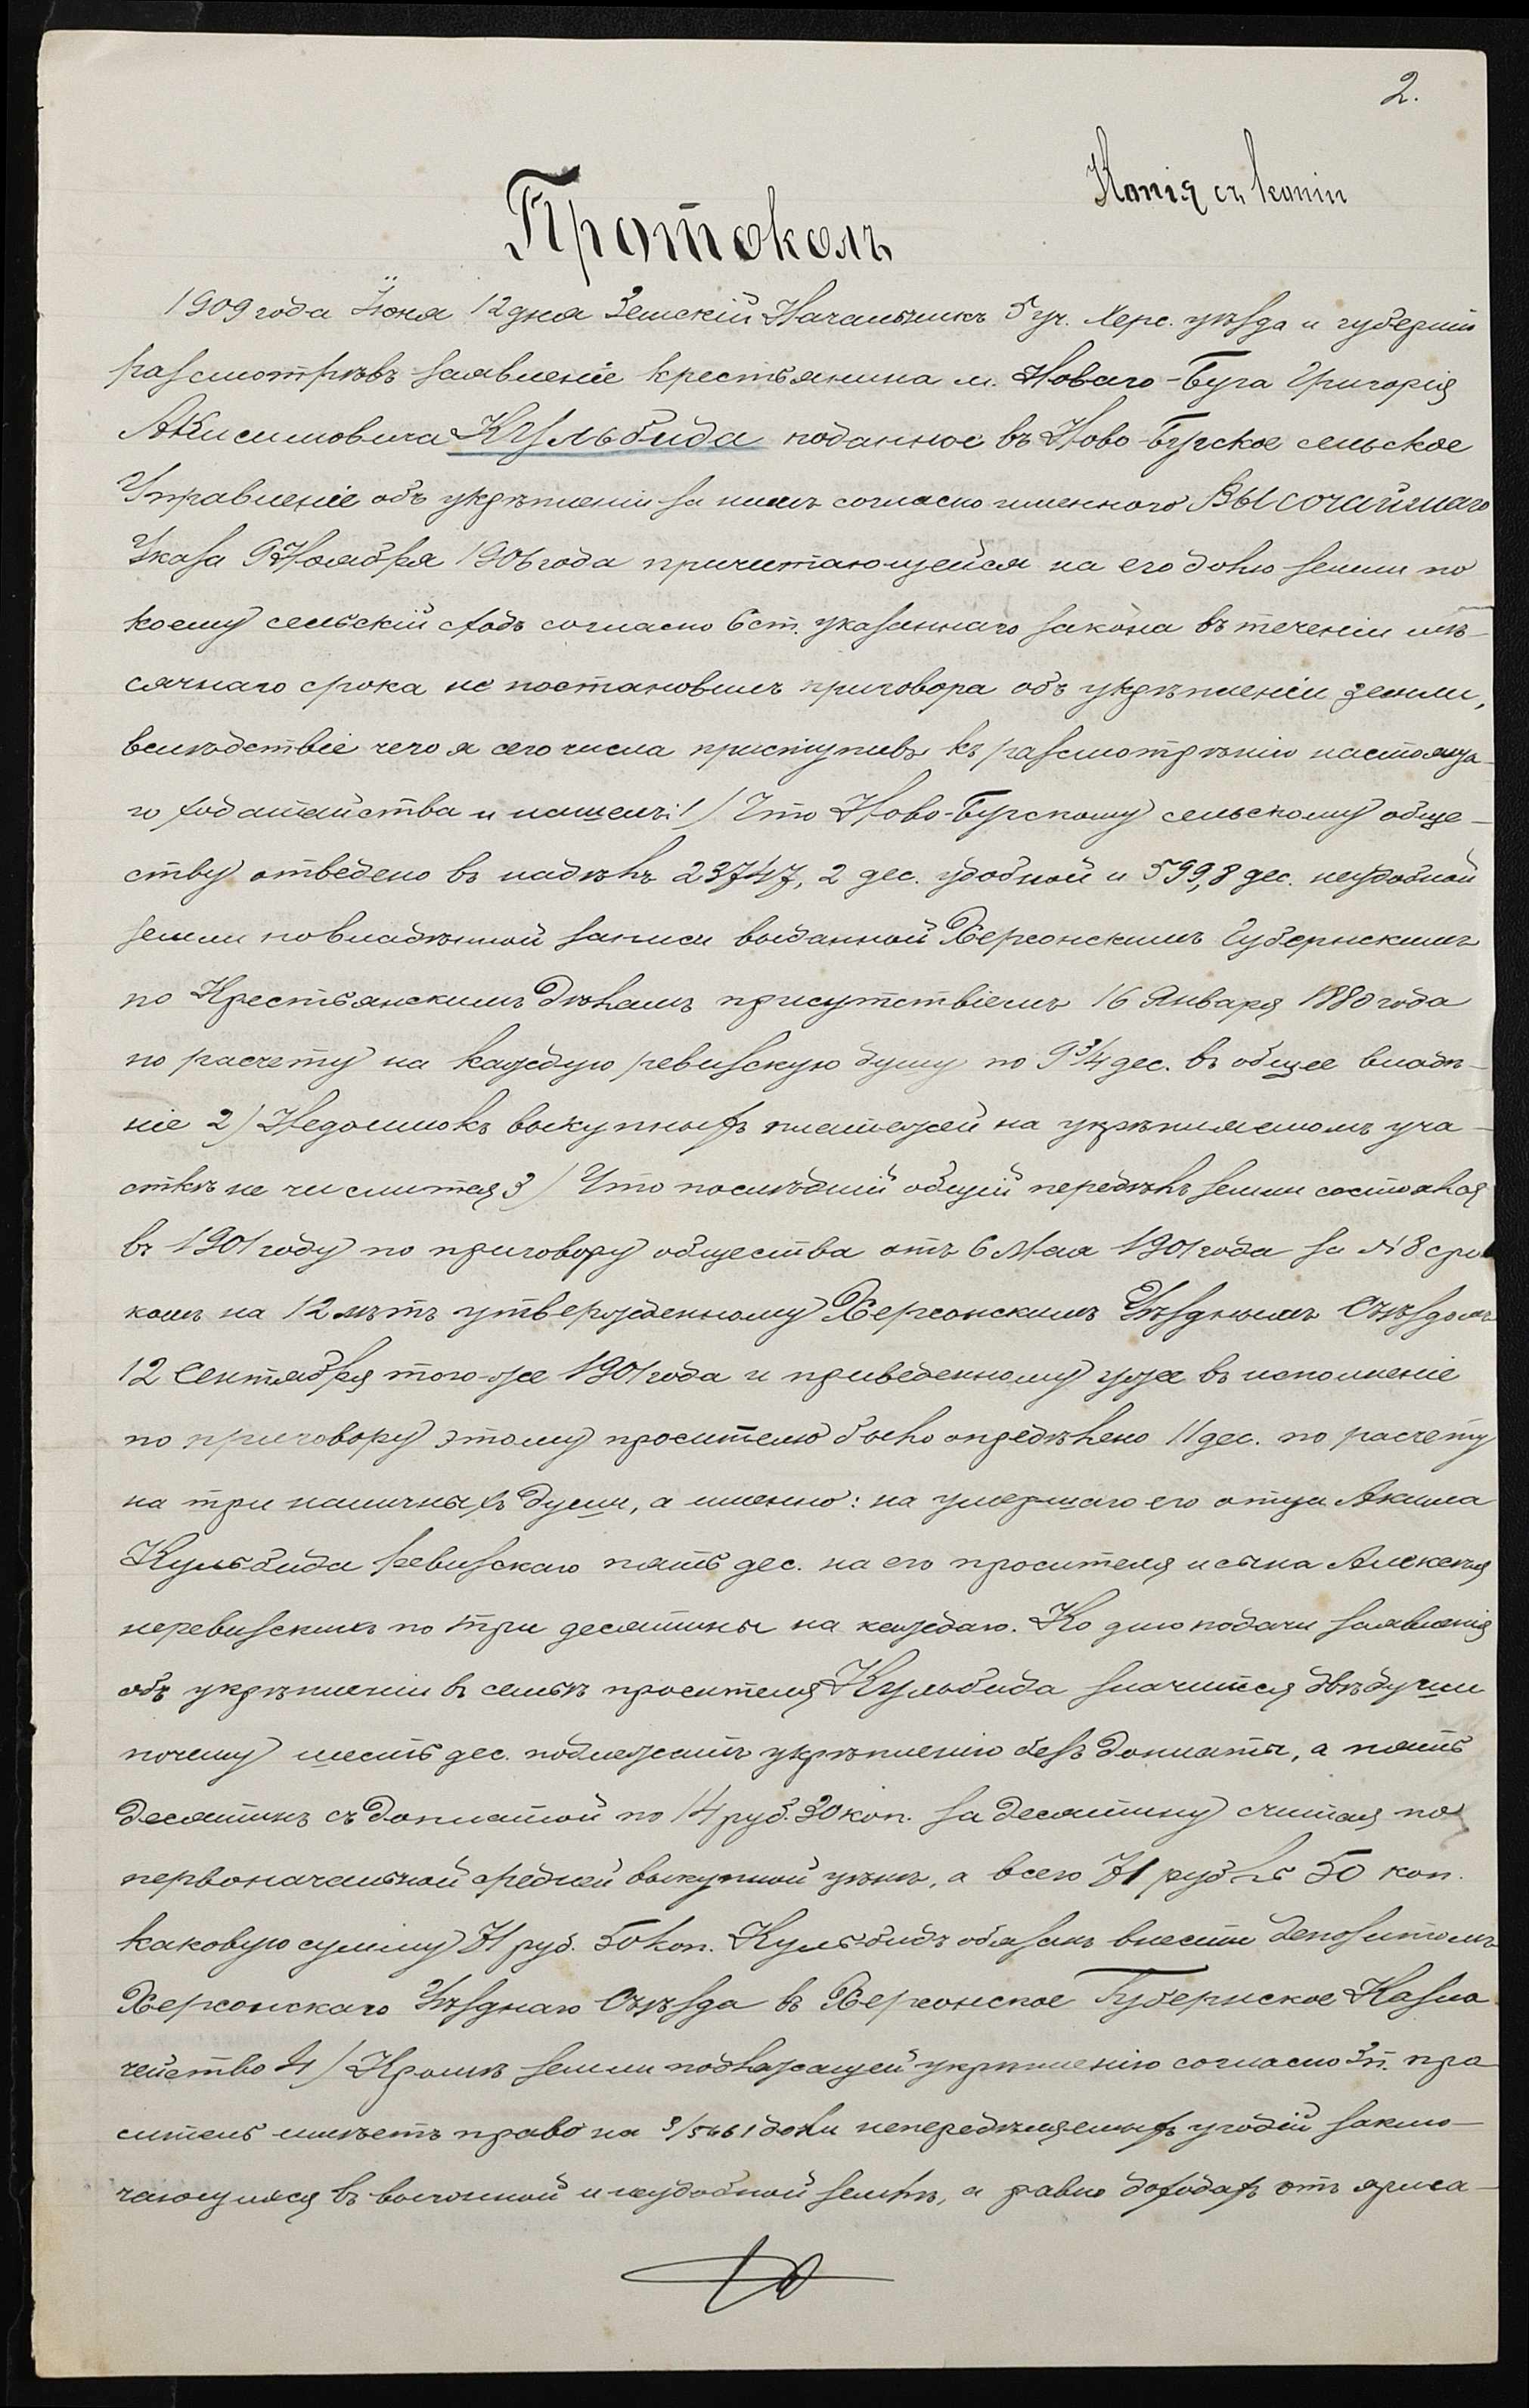 2.
Копія съ копіи
Протоколъ
1909 года Іюня 12 дня Земскій Начальникъ 5 уч. Херс. уѣзда и губерніи
разсмотрѣвъ заявленіе крестьянина м. Новаго-Буга Григорія
Акисимовича Кульбида поданное въ Ново-Бугское сельское
Управленіе объ укрѣпленіи за нимъ согласно именного ВЫСОЧАЙШАГО
Указа 9 Ноября 1906 года причитающейся на его долю земли по
коему сельскій сходъ согласно 6 ст. указаннаго закона въ теченіи мѣ-
сячнаго срока не постановилъ приговора объ укрѣпленіи земли,
вслѣдствіе чего я сего числа приступивъ къ разсмотрѣнію настояща-
го ходатайства и нашелъ: 1) Что Ново-Бугскому сельскому обще-
ству отведено въ надѣлъ 23747,2 дес. удобной и 599,8 дес. неудобной
земли по владѣнной записи выданной Херсонскимъ Губернскимъ
по Крестьянскимъ Дѣламъ присутствіемъ 16 Января 1880 года
по расчету на каждую ревизскую душу по 9 3/4 дес. въ общее владѣ-
ніе 2) Недоимокъ выкупныхъ платежей на укрѣпляемомъ уча-
сткѣ не числится 3) Что послѣдній общій передѣлъ земли состоялся
въ 1901 году по приговору общества отъ 6 Мая 1901 года за № 8 сро
комъ на 12 лѣтъ утвержденному Херсонскимъ Уѣзднымъ Съѣздомъ
12 Сентября того-же 1901 года и приведенному уже въ исполненіе
по приговору этому просителю было опредѣлено 11 дес. по расчету
на три наличныхъ души, а именно: на умершаго его отца Акима
Кульбида ревизскаго пять дес. на его просителя и сына Алексея
неревизскихъ по три десятины на каждаго. Ко дню подачи заявленія
объ укрѣпленіи въ семьѣ просителя Кульбида значится двѣ души
почему шесть дес. подлежатъ укрѣпленію безъ доплаты, а пять
десятинъ съ доплатой по 14 руб. 30 коп. за десятину считая по
первоначальной средней выкупной цѣнѣ, а всего 71 рубль 50 коп.
каковую сумму 71 руб. 50 коп. Кульбидъ обязанъ внести депозитомъ
Херсонскаго Уѣзднаго Съѣзда въ Херсонское Губернское Казна
чейство 4) Кромѣ земли подлежащей укрѣпленію согласно 3 п. про
ситель имѣетъ право на 3/5461 доли непередѣляемыхъ угодій заклю-
чающихся въ выгонной и неудобной землѣ, а равно доходахъ отъ